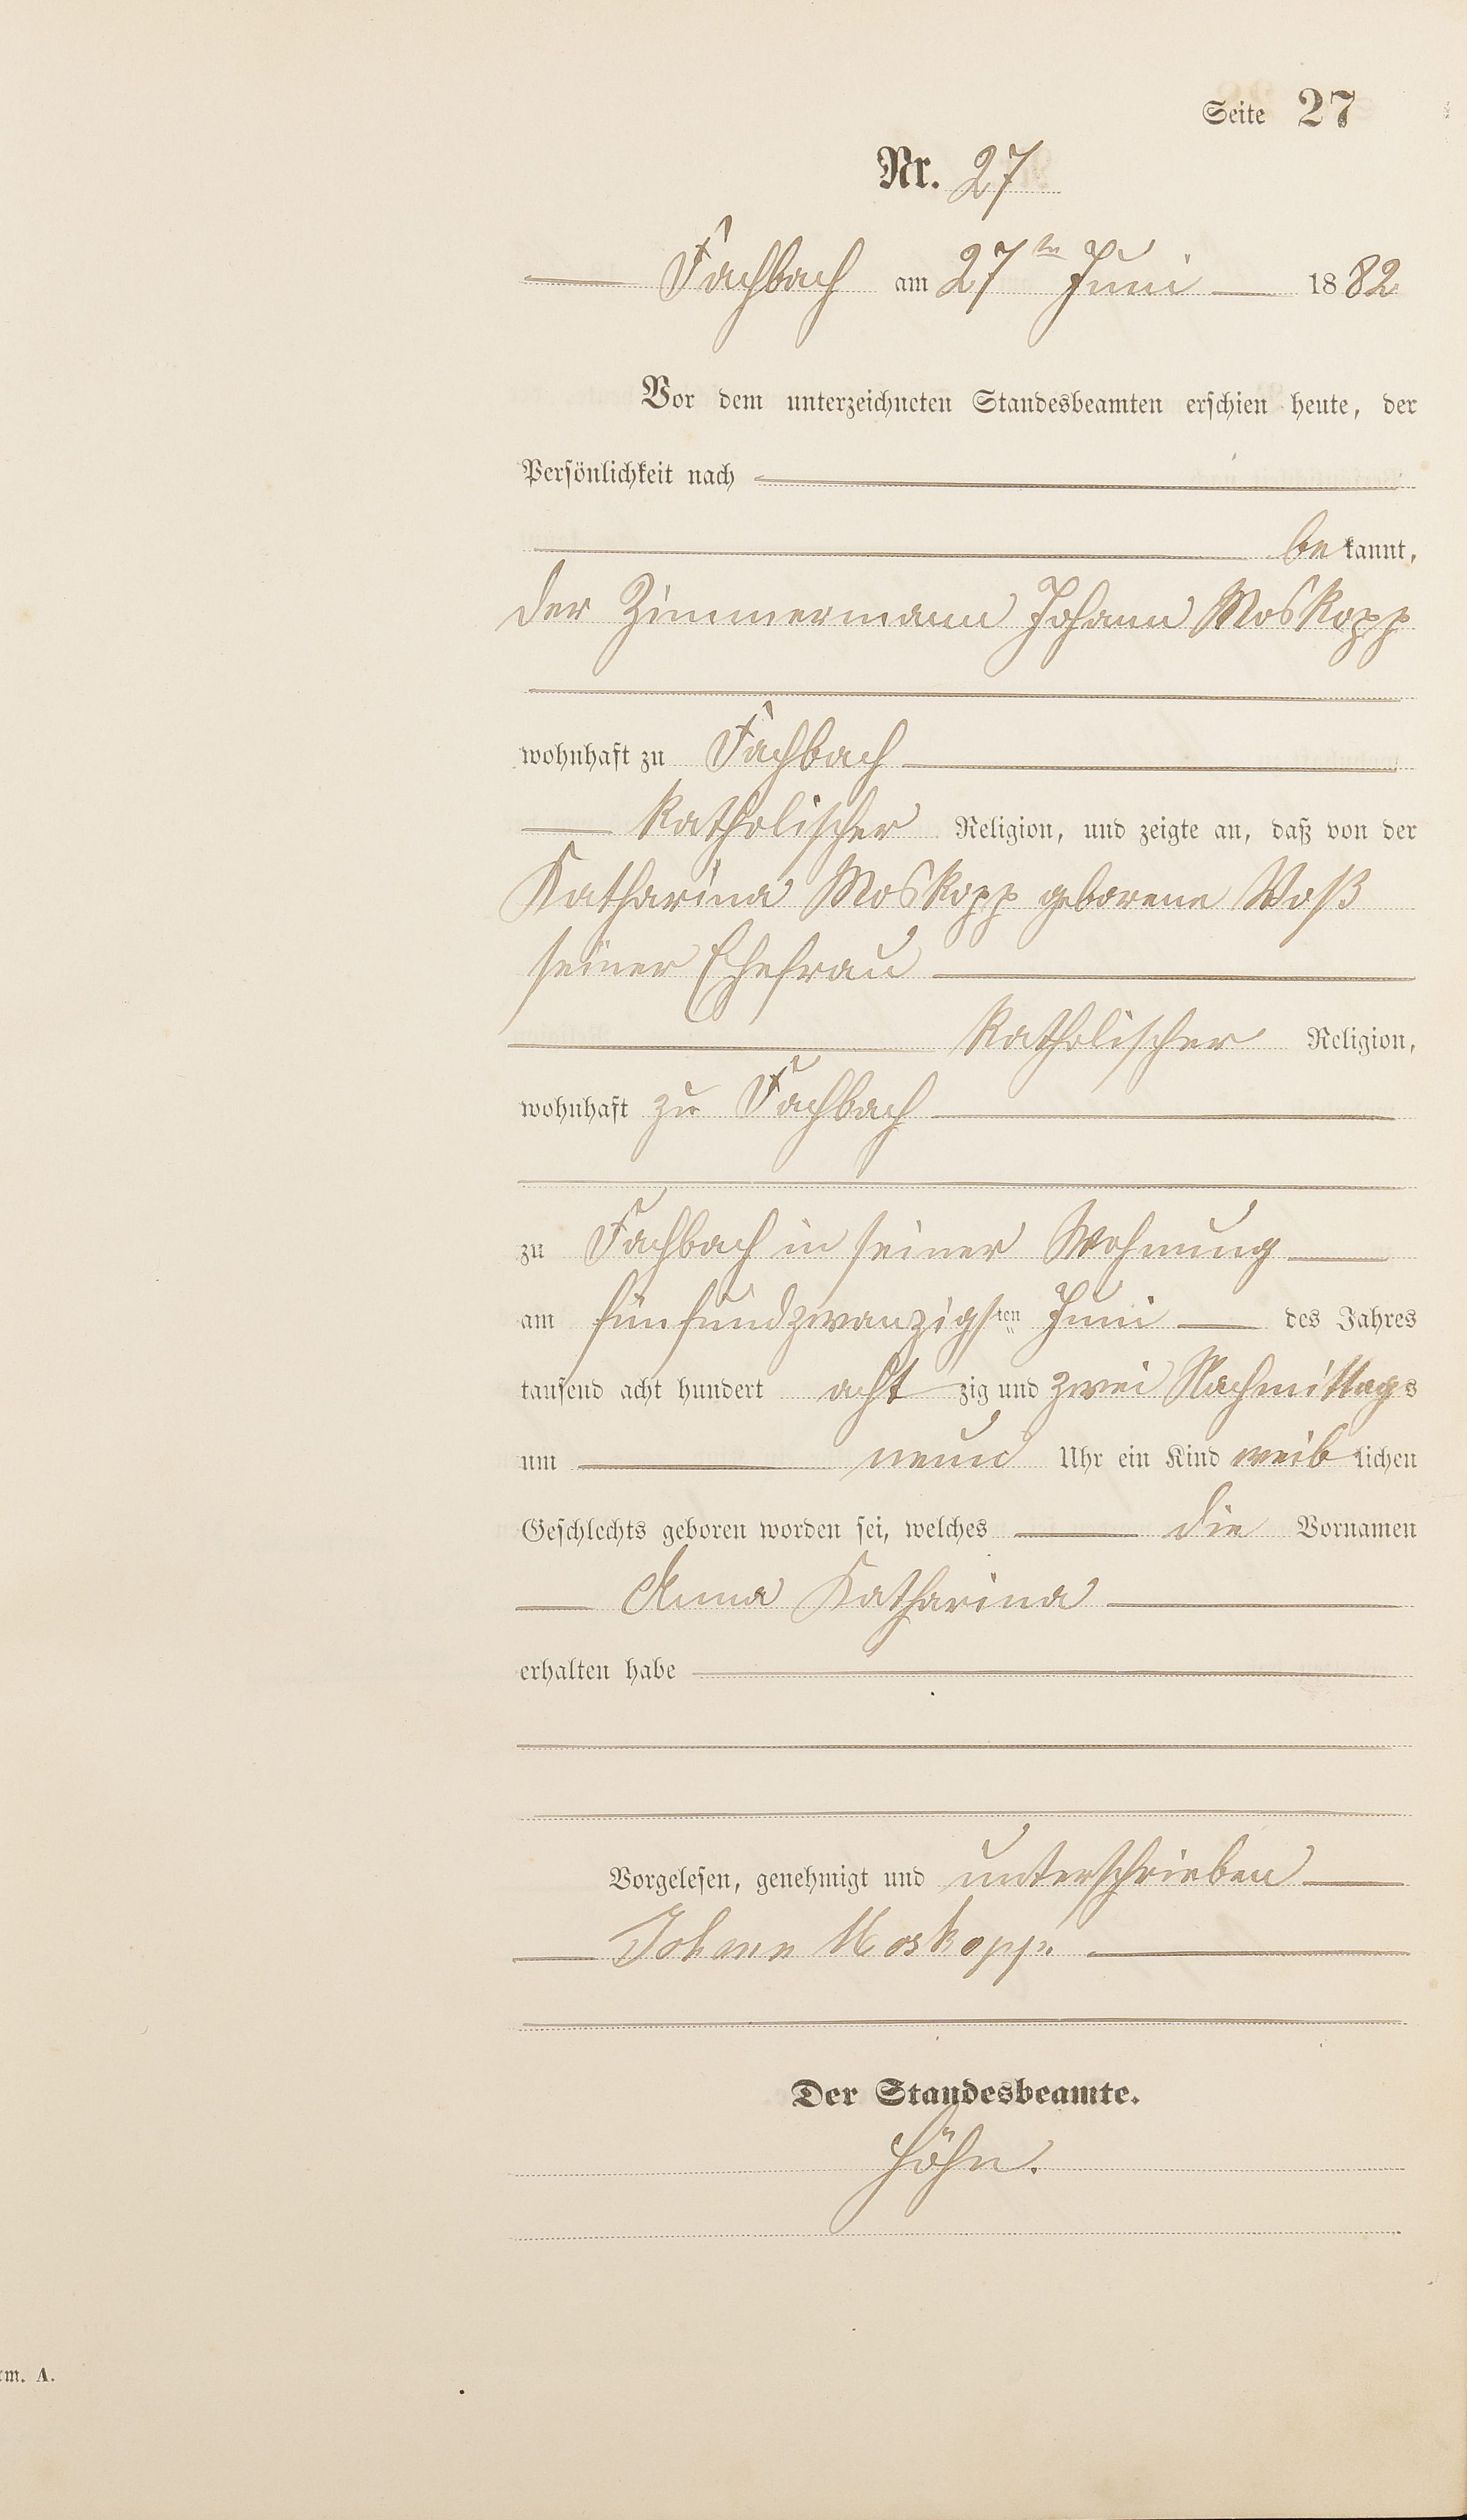 Seite 27
Nr. 27
Fachbach am 27ten Juni 1882
Vor dem unterzeichneten Standesbeamten erschien heute, der
Persönlichkeit nach
bekannt,
der Zimmermann Johann Moskopp
wohnhaft zu Fachbach
katholischer Religion, und zeigte an, daß von der
Katharina Moskopp geborene Voß
seiner Ehefrau
katholischer Religion,
wohnhaft zu Fachbach
zu Fachbach in seiner Wohnung
am fünfundzwanzigsten Juni des Jahres
tausend acht hundert achtzig und zwei Nachmittags
um neun Uhr ein Kind weiblichen
Geschlechts geboren worden sei, welches die Vornamen
Anna Katharina
erhalten habe
Vorgelesen, genehmigt und unterschrieben
Johann Moskopp.
Der Standesbeamte.
Höhn.
rm. A.